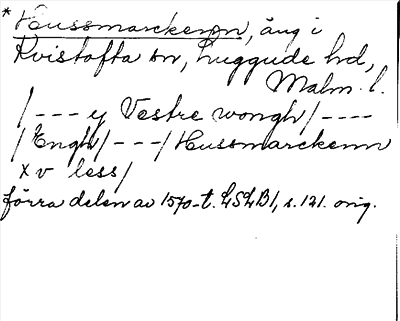 * Hussmarckenn, äng i
Kvistofta sn, Luggude hd,
Malm. l.
/--- y Vestre wongh/----
/Engh/---/Hussmarckenn
x v less/
förra delen av 1570-t. LSLB1, s. 121. orig.